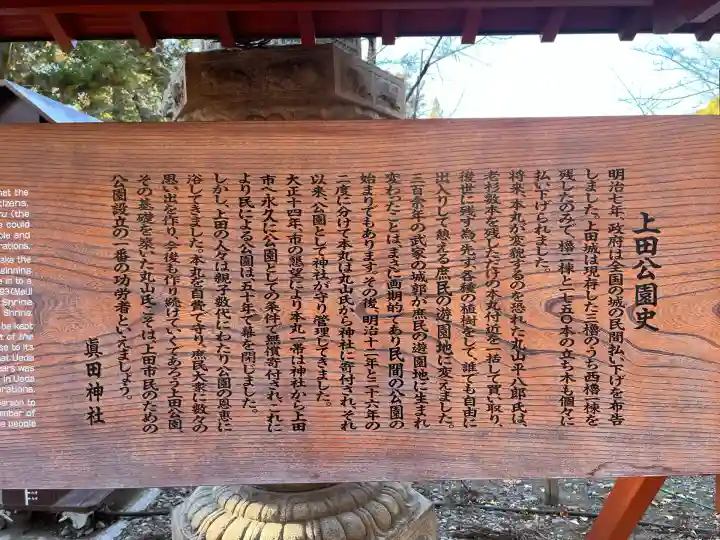 上田公園史
明治七年、政府は全国の城の民間払い下げを布告
しました。上田城は現存した三櫓のうち西櫓一棟を
残したのみで、櫓一棟と一七五〇本の立ち木も個々に
払い下げられました。
将来、本丸が変貌するのを恐れた丸山平八郎氏は、
老杉数本を残しただけの本丸付近を一括して買い取り、
後世に残す為、朱ず各種の植樹をして、誰でも自由に
出入りして憩える庶民の遊園地に変えました。
三百余年の武家の城郭が庶民の遊園地に生まれ
変わったことは、まさに画期的であり民間の公園の
始まりでもあります。その後、明治十二年と二十六年の
二度に分けて本丸は丸山氏から神社に寄付され、それ
以来、公園として神社が守り管理してきました。
大正十四年、市の懇望により本丸一帯は神社から上田
市へ永久に公園としての条件で無償寄付され、これに
より民による公園は五十年で幕を閉じました。
しかし、上田の人々は親子数代にわたり公園の恩恵に
浴してきました。本丸を自費で守り、庶民大衆に数々の
思い出を作り、今後も作り続けていくであろう上田公園、
その基礎を築いた丸山氏こそは、上田市民のための
公園設立の一番の功労者といえましょう。
眞田神社
net the
citizens.
ru (the
e could
ble and
rations.
ake the
ginning
e in to a
893 (Meiji
Shrina
Shrine.
be kept
t of the
se to its
hat Ueda
ars was
in Ueda
erations.
erson to
mber of
e people